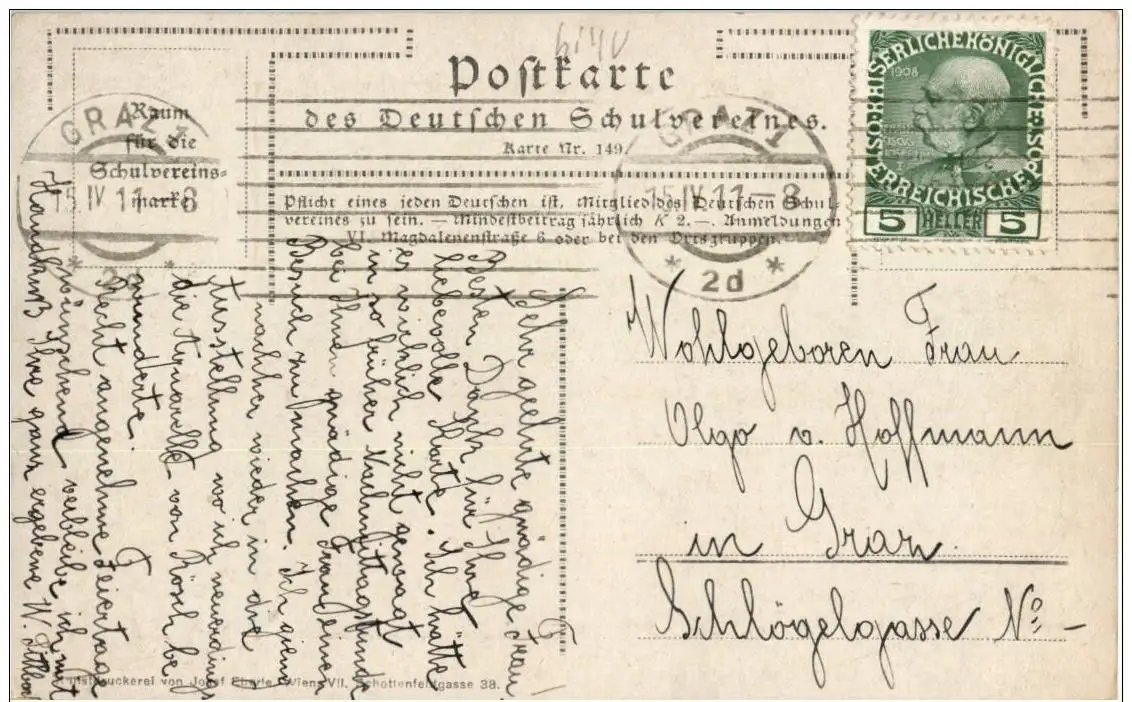 Postkarte
des Deutschen Schulvereines.
Karte Nr. 149.
Raum
für die
Schulvereins-
marke
Pflicht eines jeden Deutschen ist, Mitglied des Deutschen Schul-
vereines zu sein. — Mindestbeitrag jährlich K 2.—. Anmeldungen
VI. Magdalenenstraße 6 oder bei den Ortsgruppen.
GRAZ *
15 IV 11 - 8
* 2d
GRAZ 1
15 IV 11 - 8
* 2d *
KAISERLICHE KÖNIGLICHE ÖSTERREICHISCHE POST
1908
5 HELLER 5
Sehr geehrte gnädige Frau!
Besten Dank für Ihre
liebevolle Karte. Ich hätte
es wirklich nicht gewagt
in so früher Nachmittagsstunde
bei Ihnen gnädige Frau einen
Besuch zu machen. Ich gieng
nachher wieder in die
Ausstellung wo ich neuerdings
die Aquarelle von Rösch be
wunderte.
Recht angenehme Feiertage
wünschend verbleibe ich mit
Handkuß Ihre ganz ergebene W.
Wohlgeboren Frau
Olga v. Hoffmann
in Graz.
Schlögelgasse No: –
Kunstdruckerei von Josef Eberle, Wien, VII. Schottenfeldgasse 38.